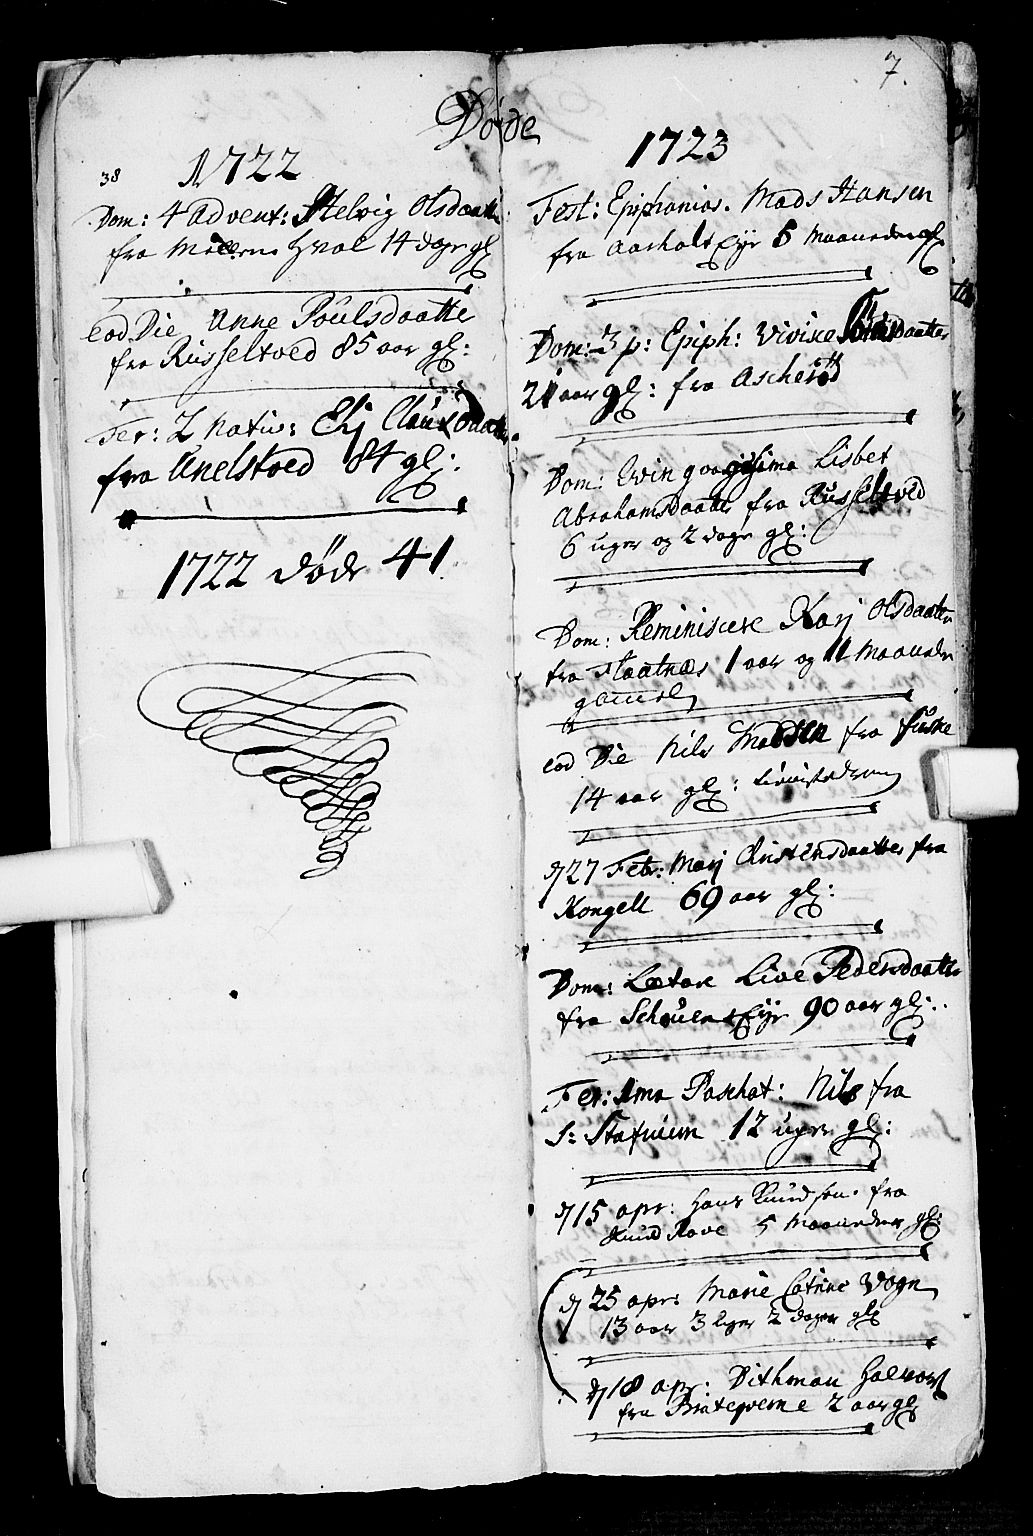 7.
Døde
38
1722
Dom: 4 Advent: Helvig Olsdaatte
fra Hval 14 dage gl
eod Die Anne Poulsdaatte
fra Russeltved 85 aar gl:
Fer: 2 nativ: Elj Clausdaatte
fra Anelstved 84 gl:
1722 døde 41
1723
Fest: Epiphanias. Mads Hansen
fra Aasholt Eje 5 Maaneder gl
Dom: 3 p: Epiph: Vivike
21 aar gl: fra
Dom: Qvinqvagesima Lisbet
Abrahamsdaatte fra Russeltved
6 uger og 2 dage gl:
Dom: Reminiscere Karj Olsdaatte
fra Flaatnæs 1 aar og 11 Maaneder
gammel
eod Die Nils Madsen fra fuske
14 aar gl:
d 27 Febr: Marj Christensdaatte fra
Kongell 69 aar gl:
Dom: Lætare Live Pedersdaatte
fra Eje 90 aar gl:
Fer: 1ma Paschat: Nils fra
S: 12 uger gl:
d 15 apr: Hans Knudsen. fra
Knud Rave 5 Maaneder gl:
d 25 apr: Marie Catrine Vogn
13 aar 3 Uger 2 dager gl
d 18 apr: Dithman Halvors
fra 2 aar gl